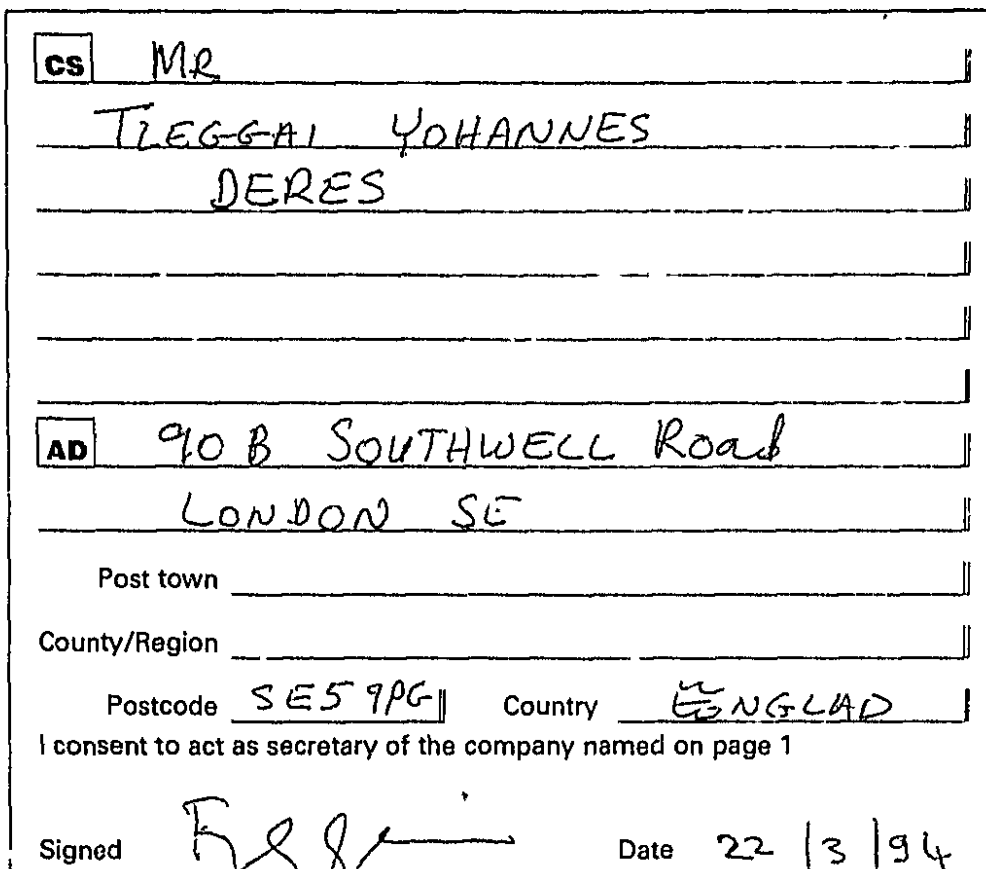 CS MR
TZEGGAI YOHANNES
DERES
AD 90 B SOUTHWELL Road
LONDON SE
Post town
County/Region
Postcode SE5 9PG Country ENGLAD
I consent to act as secretary of the company named on page 1
Signed Date 22/3/94